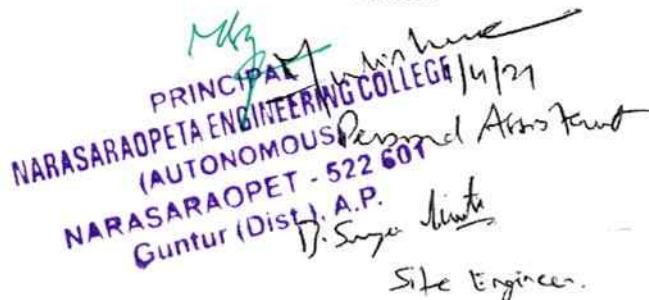 PRINCIPAL
NARASARAOPETA ENGINEERING COLLEGE
(AUTONOMOUS)
NARASARAOPET - 522 601
Guntur (Dist.), A.P.
/4/21
Personal Assistant
Site Engineer.